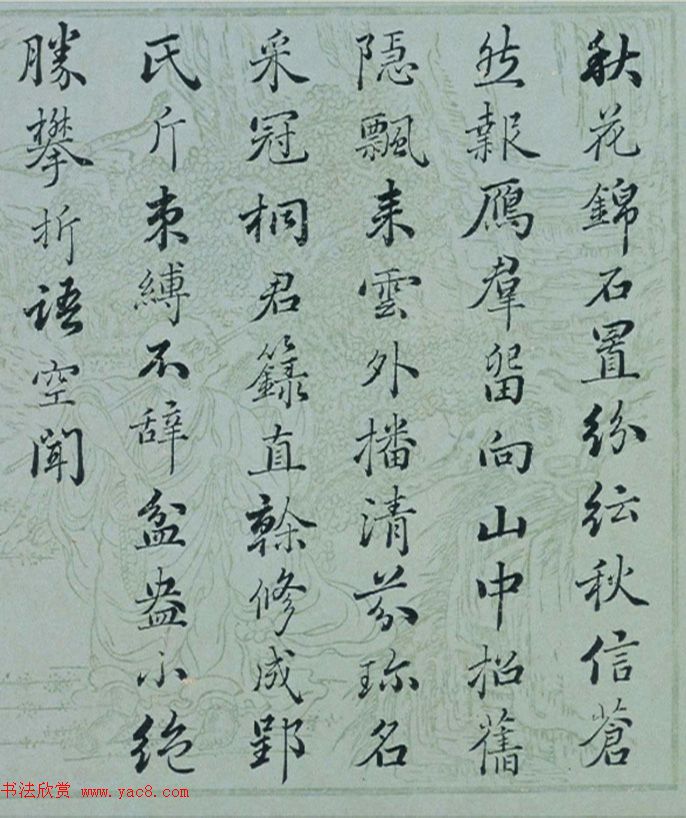 秋花錦石置紛紜秋信蒼
然報鴈羣留向山中招舊
隱飄来雲外播清芬珎名
采冠桐君籙直榦修成郢
氏斤束縛不辞盆盎小絶
勝攀折語空聞
书法欣赏 www.yac8.com